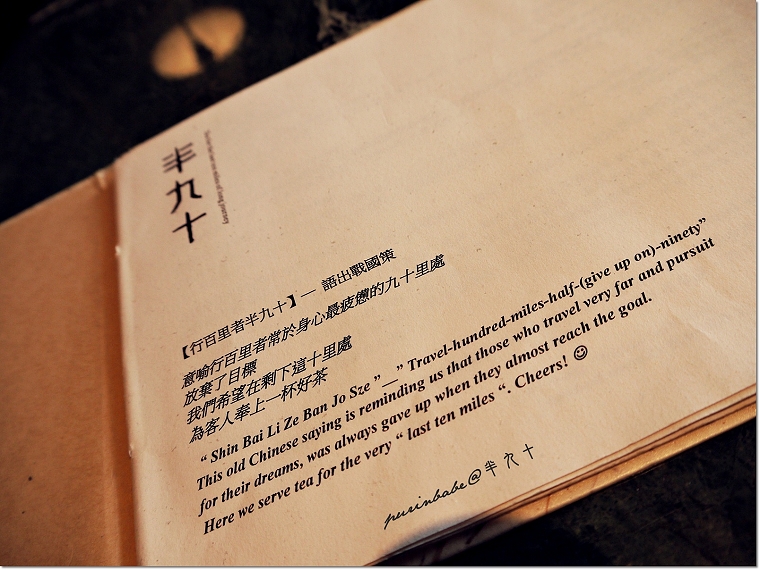 半九十
【行百里者半九十】— 語出戰國策
意喻行百里者常於身心最疲憊的九十里處
放棄了目標
我們希望在剩下這十里處
為客人奉上一杯好茶
“ Shin Bai Li Ze Ban Jo Sze ”__” Travel-hundred-miles-half-(give up on)-ninety”
This old Chinese saying is reminding us that those who travel very far and pursuit
for their dreams, was always gave up when they almost reach the goal.
Here we serve tea for the very “ last ten miles “. Cheers! ☺
purinbabe@半九十